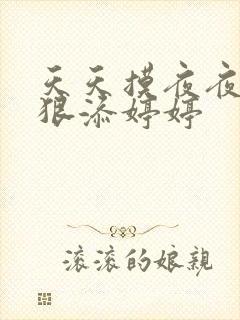 天天摸夜夜
狠添婷婷
滚滚的娘親